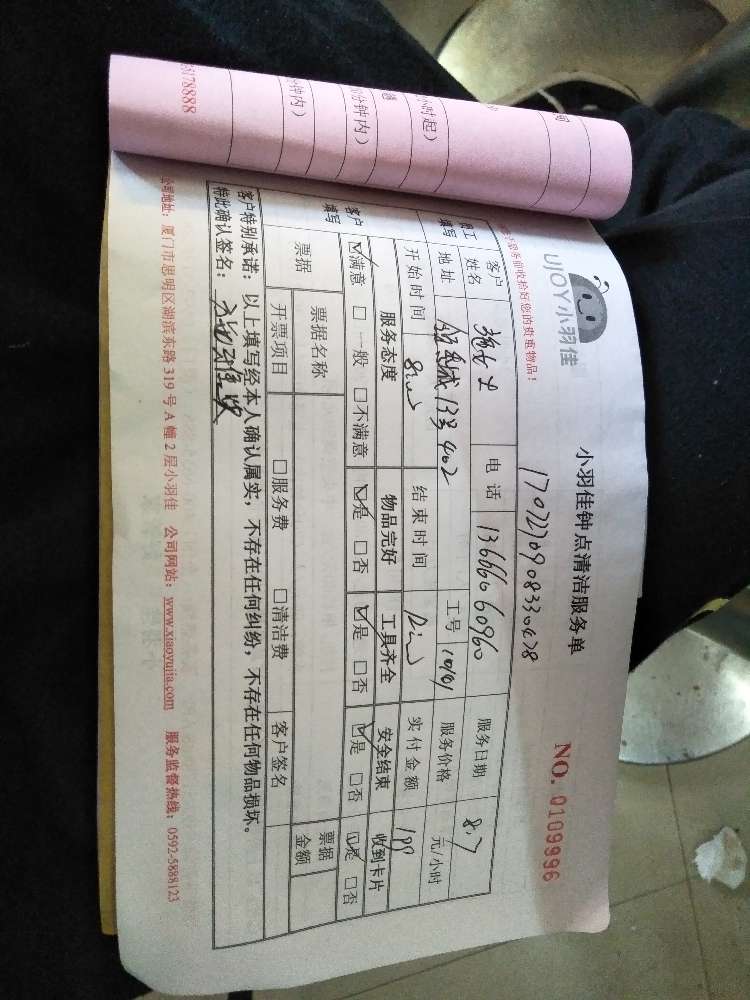 UJOY小羽佳
小羽佳钟点清洁服务单
NO. 0109996
1707270908330478
收拾好您的贵重物品！
客户姓名 电话 13666060960 服务日期 8.7
地址 13号402 工号 10101 服务价格 元/小时
员工填写
开始时间 结束时间 实付金额
客户填写
服务态度 物品完好 工具齐全 安全结束 收到卡片
☑满意 □一般 □不满意 ☑是 □否 ☑是 □否 ☑是 □否 ☑是 □否
票据 票据名称 客户签名 票据金额
开票项目 □服务费 □清洁费
客户特别承诺：以上填写经本人确认属实，不存在任何纠纷，不存在任何物品损坏。
特此确认签名：
公司地址：厦门市思明区湖滨东路319号A幢2层小羽佳 公司网站：www.xiaoyujia.com 服务监督热线：0592-5888123
小时起）
0分钟内）
分钟内）
8178888